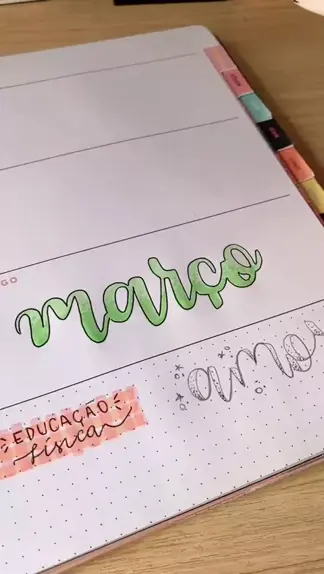 GO
março
amor
EDUCAÇÃO
física